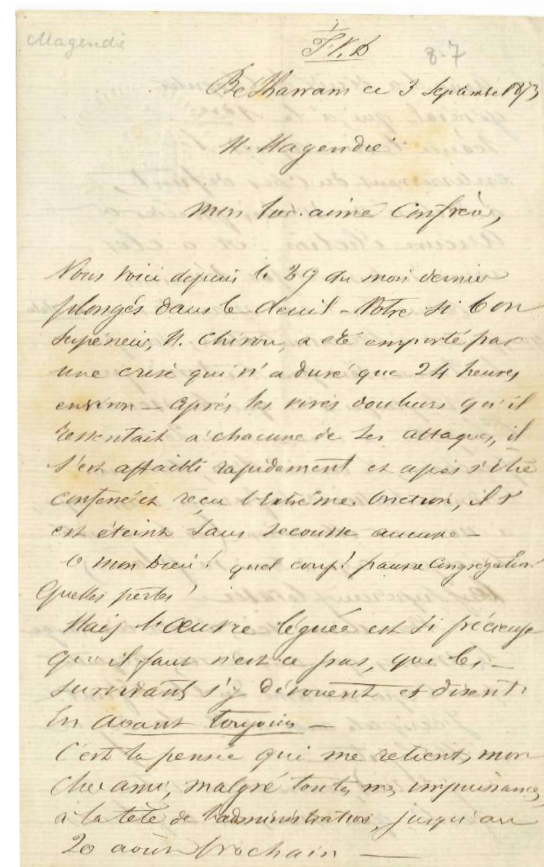 Magendie
F.V.D
8-7
Betharram ce 3 septembre 1873
M. Magendie
mon bien-aimé Confrère,
Nous voici depuis le 29 du mois dernier
plongés dans le deuil - Notre si bon
supérieur, M. Chirou, a été emporté par
une crise qui n'a duré que 24 heures
environ - après les vives douleurs qu'il
ressentait à chacune de ses attaques, il
s'est affaibli rapidement et après s'être
confessé et reçu l'Extrême Onction, il s'
est éteint sans secousse aucune -
O mon Dieu! quel coup! pauvre Congrégation
Quelles pertes!
Mais l'Œuvre léguée est si précieuse
qu'il faut n'est ce pas, que les
survivants s'y dévouent et disent:
En avant toujours -
C'est la pensée qui me retient, mon
cher ami, malgré toutes mes impuissances,
à la tête de l'administration, jusqu'au
20 août prochain -